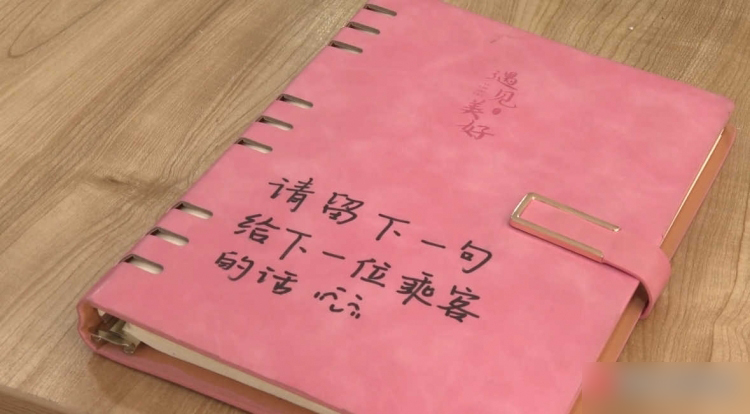 遇见
美好
请留下一句
给下一位乘客
的话